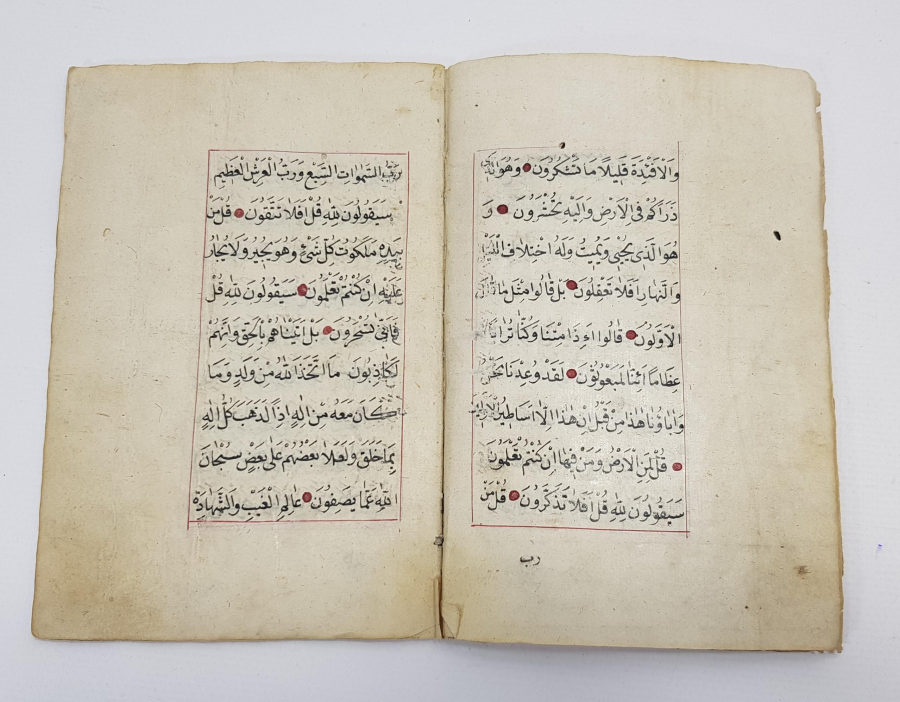 وَالْاَفْئِدَةَ قَلِيلًا مَا تَشْكُرُونَ وَهُوَ الَّذِي
ذَرَاَكُمْ فِي الْاَرْضِ وَاِلَيْهِ تُحْشَرُونَ وَ
هُوَ الَّذِي يُحْيِي وَيُمِيتُ وَلَهُ اخْتِلَافُ الَّيْلِ
وَالنَّهَارِ اَفَلَا تَعْقِلُونَ بَلْ قَالُوا مِثْلَ مَا قَالَ
الْاَوَّلُونَ قَالُوا ءَاِذَا مِتْنَا وَكُنَّا تُرَابًا وَ
عِظَامًا اَئِنَّا لَمَبْعُوثُونَ لَقَدْ وُعِدْنَا نَحْنُ
وَاٰبَاؤُنَا هٰذَا مِنْ قَبْلُ اِنْ هٰذَا اِلَّا اَسَاطِيرُ الْاَوَّلِينَ
قُلْ لِمَنِ الْاَرْضُ وَمَنْ فِيهَا اِنْ كُنْتُمْ تَعْلَمُونَ
سَيَقُولُونَ لِلّٰهِ قُلْ اَفَلَا تَذَكَّرُونَ قُلْ مَنْ
رب
رَبُّ السَّمٰوَاتِ السَّبْعِ وَرَبُّ الْعَرْشِ الْعَظِيمِ
سَيَقُولُونَ لِلّٰهِ قُلْ اَفَلَا تَتَّقُونَ قُلْ مَنْ
بِيَدِهِ مَلَكُوتُ كُلِّ شَيْءٍ وَهُوَ يُجِيرُ وَلَا يُجَارُ
عَلَيْهِ اِنْ كُنْتُمْ تَعْلَمُونَ سَيَقُولُونَ لِلّٰهِ قُلْ
فَاَنّٰى تُسْحَرُونَ بَلْ اَتَيْنَاهُمْ بِالْحَقِّ وَاِنَّهُمْ
لَكَاذِبُونَ مَا اتَّخَذَ اللّٰهُ مِنْ وَلَدٍ وَمَا
كَانَ مَعَهُ مِنْ اِلٰهٍ اِذًا لَذَهَبَ كُلُّ اِلٰهٍ
بِمَا خَلَقَ وَلَعَلَا بَعْضُهُمْ عَلٰى بَعْضٍ سُبْحَانَ
اللّٰهِ عَمَّا يَصِفُونَ عَالِمِ الْغَيْبِ وَالشَّهَادَةِ